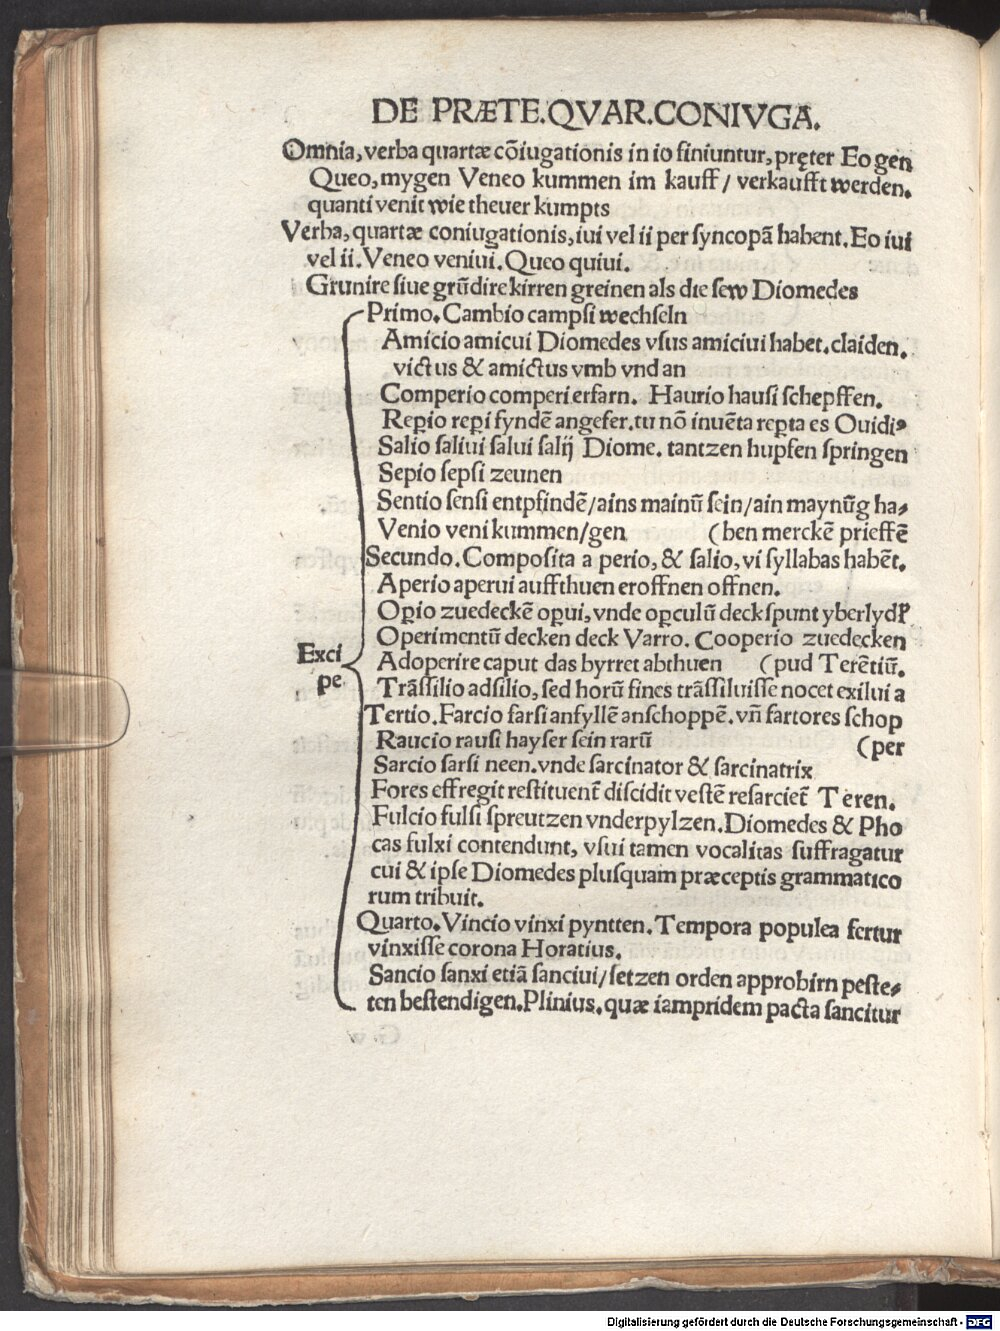 DE PRÆTE.QVAR.CONIVGA.
Omnia, verba quartæ cõiugationis in io finiuntur, pręter Eo gen
Queo, mygen Veneo kummen im kauff/ verkaufft werden.
quanti venit wie theuer kumpts
Verba, quartæ coniugationis, iui vel ii per syncopã habent. Eo iui
vel ii. Veneo veniui. Queo quiui.
Grunire siue grũdire kirren greinen als die sew Diomedes
Primo. Cambio campsi wechseln
Amicio amicui Diomedes vsus amiciui habet. claiden.
victus & amictus vmb vnd an
Comperio comperi erfarn. Haurio hausi schepffen.
Reꝑio reꝑi fyndẽ angefer. tu nõ inuẽta reꝑta es Ouidiꝰ
Salio saliui salui salij Diome. tantzen hupfen springen
Sepio sepsi zeunen
Sentio sensi entpfindẽ/ains mainũ sein/ain maynũg ha⸗
Venio veni kummen/gen (ben merckẽ prieffẽ
Secundo. Composita a perio, & salio, vi syllabas habẽt.
Aperio aperui auffthuen eroffnen offnen.
Oꝑio zuedeckẽ oꝑui, vnde oꝑculũ deck spunt yberlydr̃
Operimentũ decken deck Varro. Cooperio zuedecken
Exci
pe
Adoperire caput das byrret abthuen (pud Terẽtiũ.
Trãssilio adsilio, sed horũ fines trãssiluisse nocet exilui a
Tertio. Farcio farsi anfyllẽ anschoppẽ. vñ fartores schop
Raucio rausi hayser sein rarũ (per
Sarcio sarsi neen. vnde sarcinator & sarcinatrix
Fores effregit restituent̃ discidit vestẽ resarciet̃ Teren.
Fulcio fulsi spreutzen vnderpylzen. Diomedes & Pho
cas fulxi contendunt, vsui tamen vocalitas suffragatur
cui & ipse Diomedes plusquam præceptis grammatico
rum tribuit.
Quarto. Vincio vinxi pyntten. Tempora populea fertur
vinxisse corona Horatius.
Sancio sanxi etiã sanciui/setzen orden approbirn peste⸗
ten bestendigen. Plinius. quæ iampridem pacta sancitur
Digitalisierung gefördert durch die Deutsche Forschungsgemeinschaft - DFG